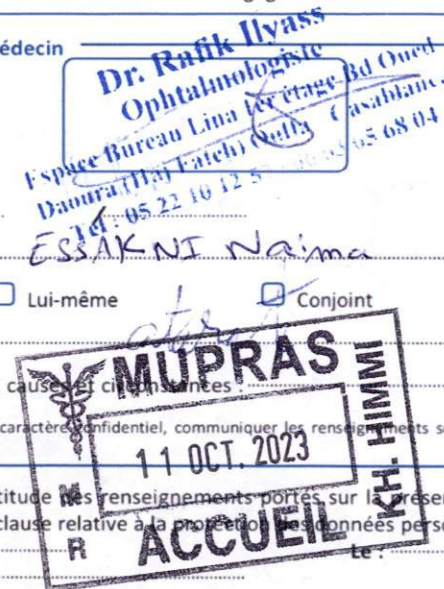 édecin
Dr. Rafik Ilyass
Ophtalmologiste
Espace Bureau Lina 1er étage Bd Oued
Daoura (Haj Fateh) Oulfa Casablanc
Tél : 05 22 10 12 5 65 68 04
ESSAKNI Naima
Lui-même Conjoint
MUPRAS
causes et circonstances :
caractère confidentiel, communiquer les renseignements s
11 OCT. 2023
KH. HIMMI
titude des renseignements portés sur la présen
clause relative à la protection des données perso
R M R
ACCUEIL
Le :